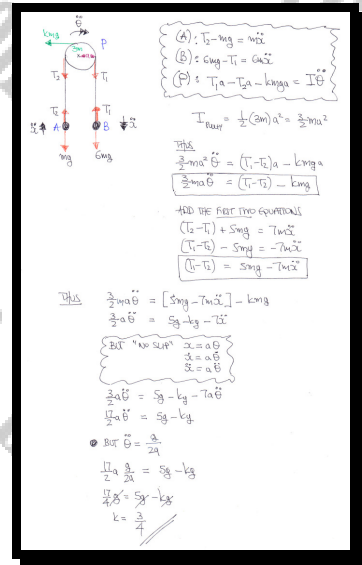 θ̈
kmg
P
3m
a
T₂ T₁
T₂ T₁
ẍ A B ẍ
mg 6mg
(A): T₂-mg = mẍ
(B): 6mg-T₁ = 6mẍ
(P): T₁a-T₂a-kmga = Iθ̈
I = ½(3m)a² = 3/2 ma²
THUS
3/2 ma² θ̈ = (T₁-T₂)a - kmga
3/2 ma θ̈ = (T₁-T₂) - kmg
ADD THE FIRST TWO EQUATIONS
(T₂-T₁) + 5mg = 7mẍ
(T₁-T₂) - 5mg = -7mẍ
(T₁-T₂) = 5mg - 7mẍ
THUS 3/2 maθ̈ = [5mg-7mẍ] - kmg
3/2 aθ̈ = 5g - kg - 7ẍ
BUT "NO SLIP" x = aθ
ẋ = aθ̇
ẍ = aθ̈
3/2 aθ̈ = 5g - kg - 7aθ̈
17/2 aθ̈ = 5g - kg
BUT θ̈ = g/2a
17/2 a g/2a = 5g - kg
17/4 g = 5g - kg
k = 3/4